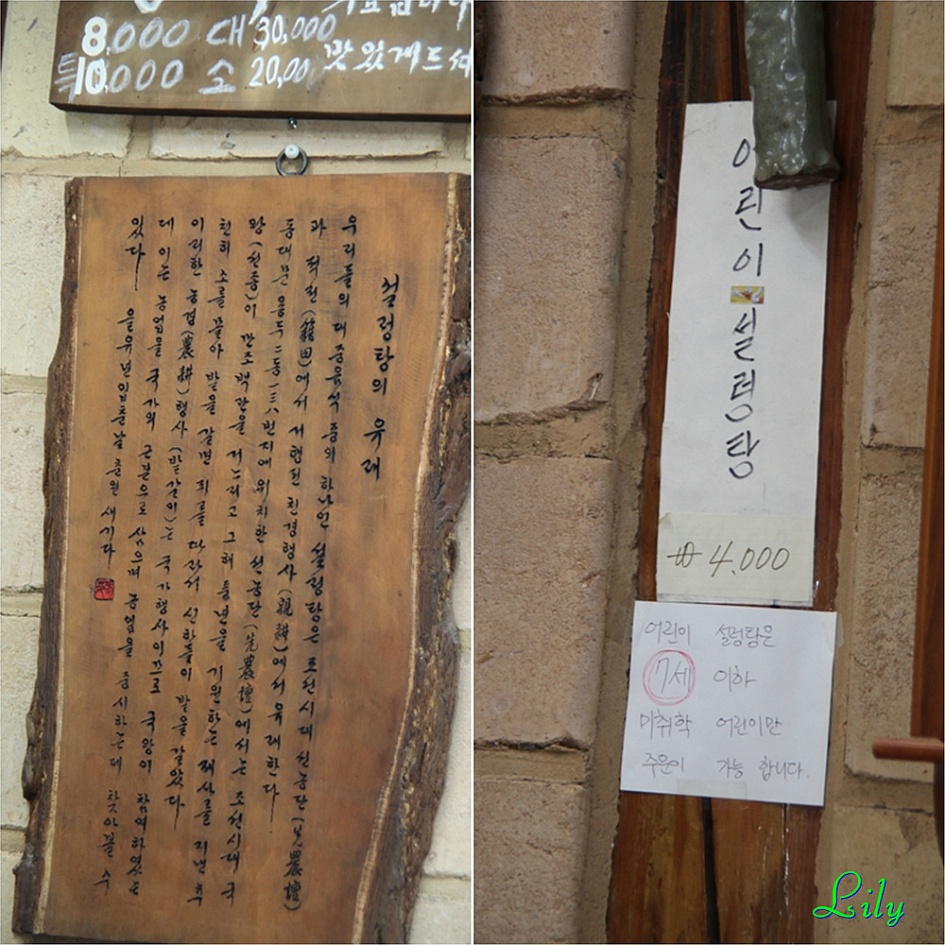 8,000 대 30,000
특 10,000 소 20,00 맛있게드
설렁탕의 유래
우리들의 대중음식 중의 하나인 설렁탕은 조선시대 선농단(先農壇)
과 적전(籍田)에서 서행된 친경행사(親耕)에서 유래한다
동대문 용두二동 一三八번지에 위치한 선농단(先農壇)에서는 조선시대 국
왕(선종)이 만조백관을 거느리고 그해 풍년을 기원하는 제사를 지낸 후
친히 소를 몰아 밭을 갈면 뒤를 따라서 신하들이 밭을 갈았다
이러한 농경(農耕)행사(밭갈이)는 국가행사이므로 국왕이 참여하였는
데 이는 농업을 국가의 근본으로 삼으며 농업을 중시하는데 찾아볼 수
있다 을유년입춘날 준원 새기다
어린이
설렁탕
₩4,000
어린이 설렁탕은
7세 이하
미취학 어린이만
주문이 가능 합니다.
Lily